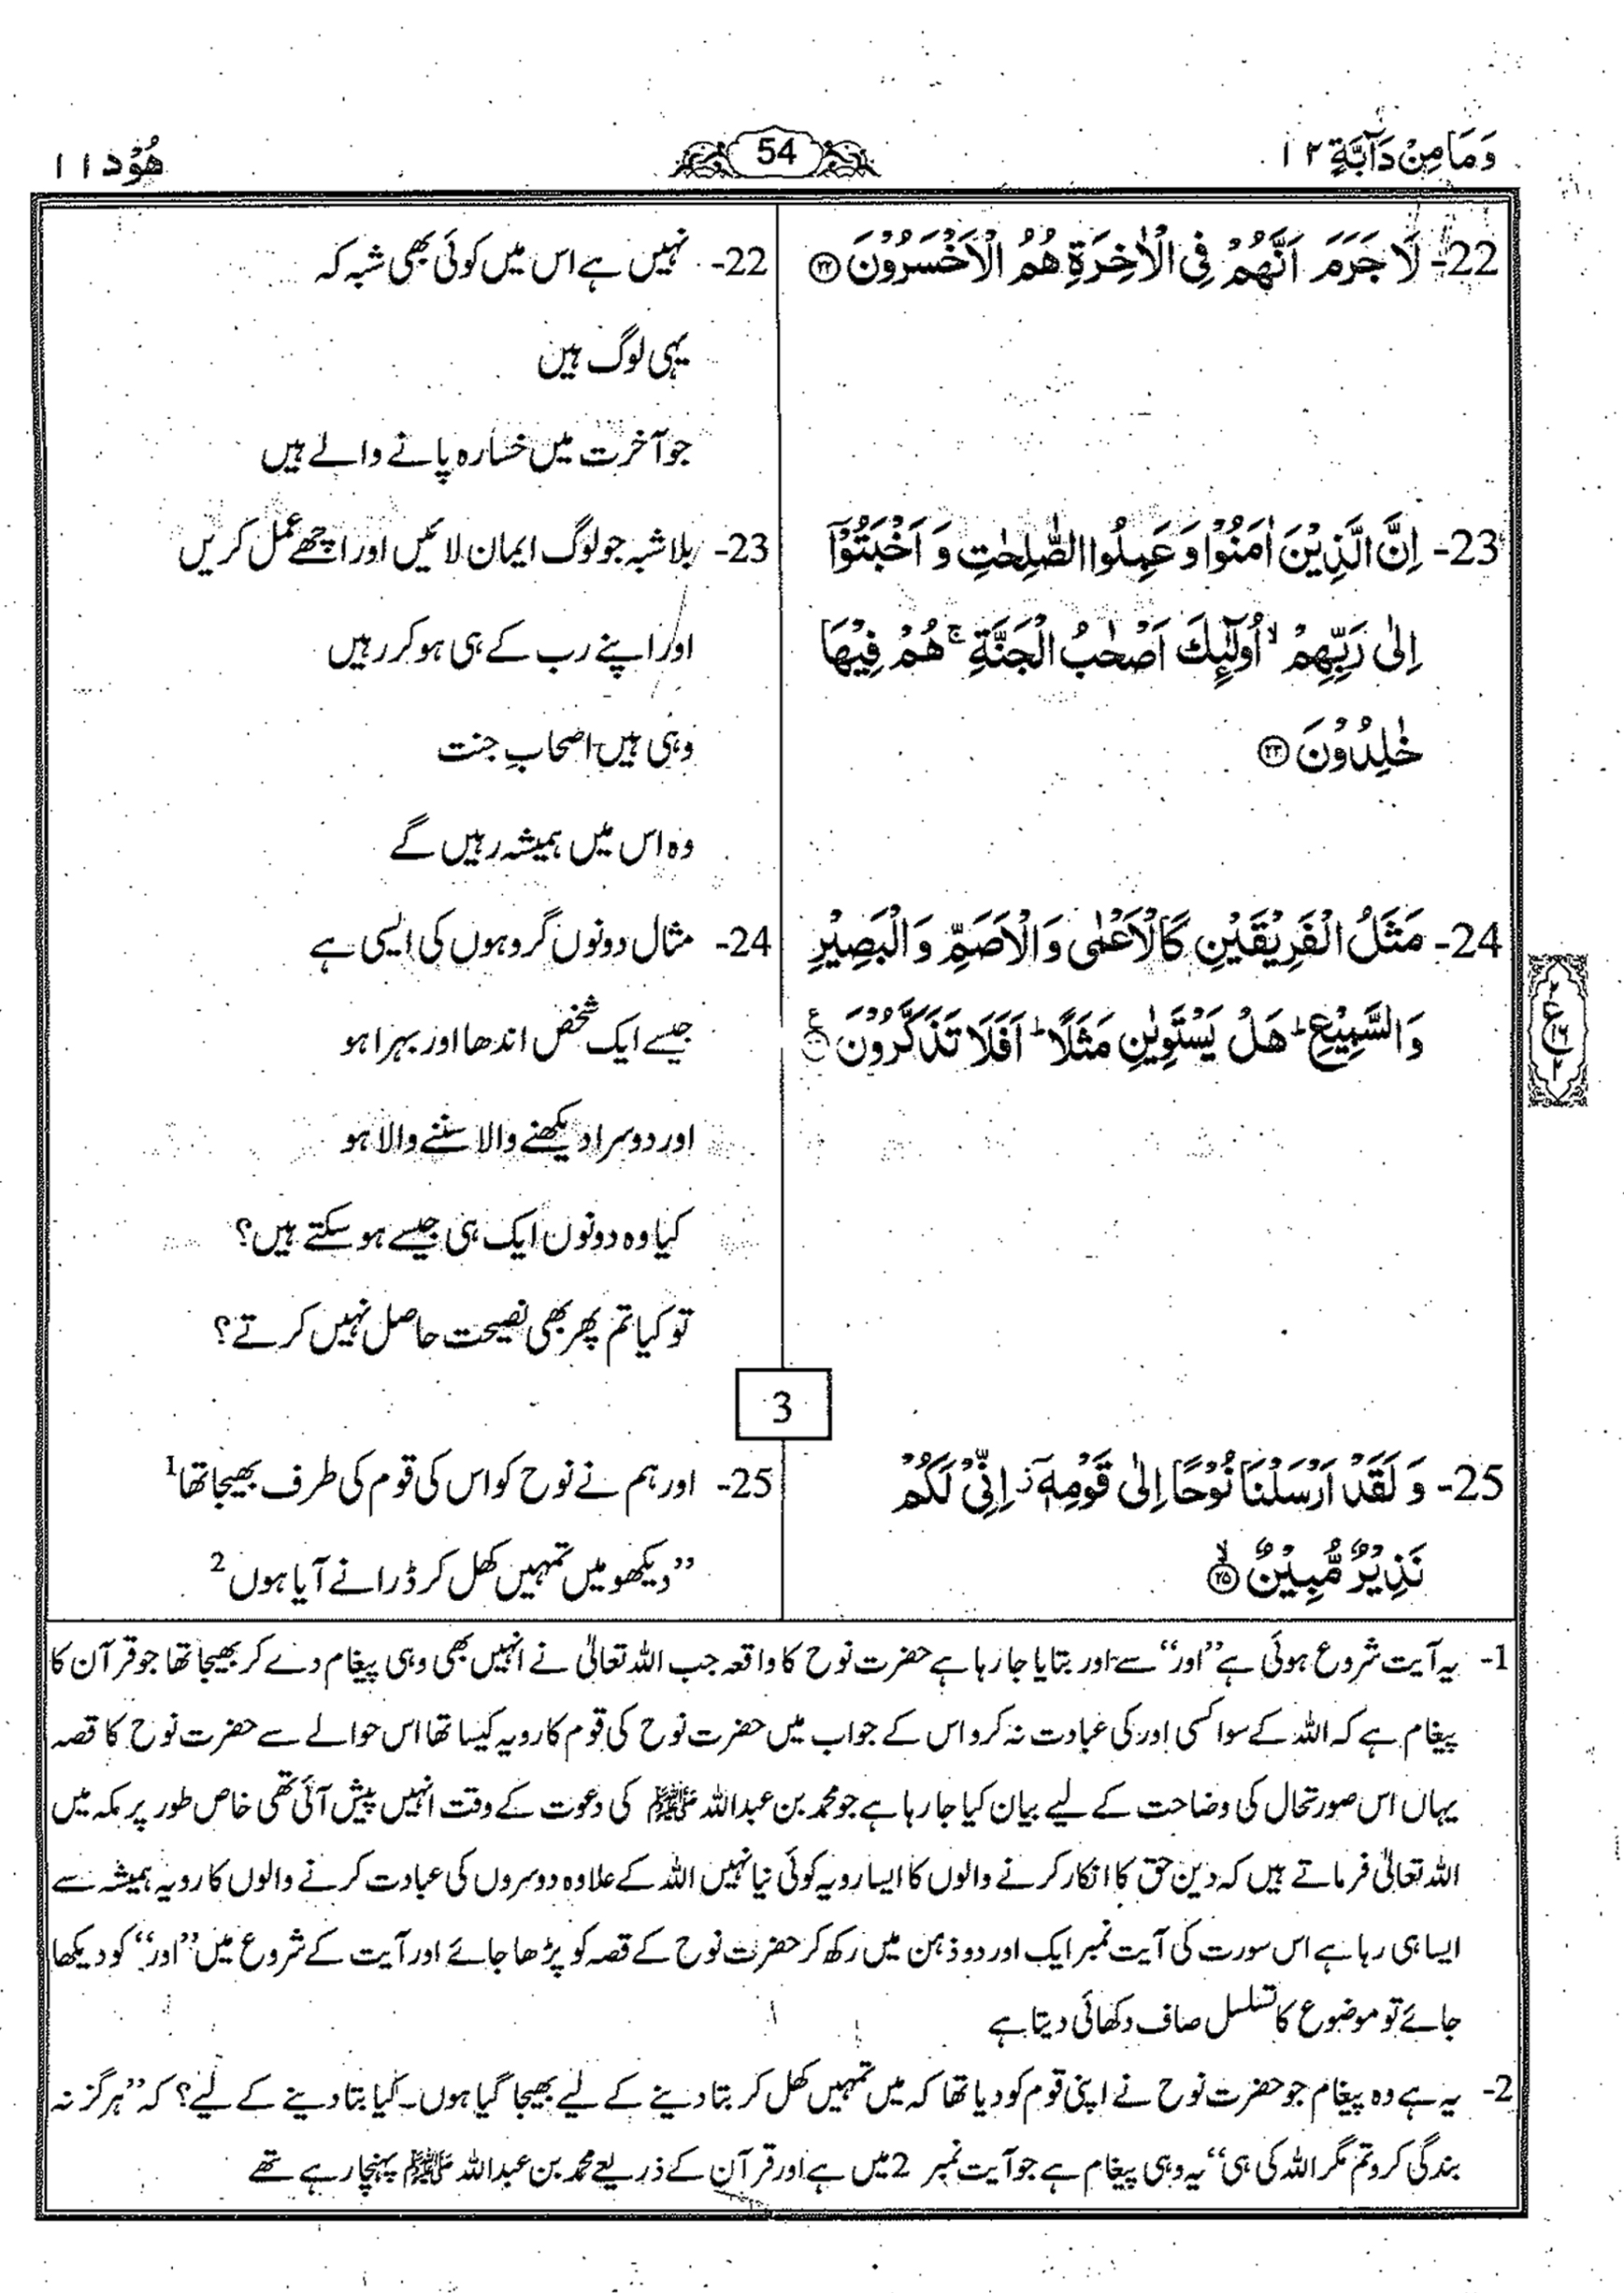 وَمَا مِنْ دَآبَّةٍ ۱۲
54
هُوْد ۱۱
22- لَا جَرَمَ اَنَّهُمْ فِى الْاٰخِرَةِ هُمُ الْاَخْسَرُوْنَ ۲۲
23- اِنَّ الَّذِيْنَ اٰمَنُوْا وَ عَمِلُوا الصّٰلِحٰتِ وَ اَخْبَتُوْۤا
اِلٰى رَبِّهِمْ ۙ اُولٰٓئِكَ اَصْحٰبُ الْجَنَّةِ ۚ هُمْ فِيْهَا
خٰلِدُوْنَ ۲۳
24- مَثَلُ الْفَرِيْقَيْنِ كَالْاَعْمٰى وَ الْاَصَمِّ وَ الْبَصِيْرِ
وَ السَّمِيْعِ ؕ هَلْ يَسْتَوِيٰنِ مَثَلًا ؕ اَفَلَا تَذَكَّرُوْنَ
25- وَ لَقَدْ اَرْسَلْنَا نُوْحًا اِلٰى قَوْمِهٖۤ ز اِنِّىْ لَكُمْ
نَذِيْرٌ مُّبِيْنٌ ۙ ۲۵
22- نہیں ہے اس میں کوئی بھی شبہ کہ
یہی لوگ ہیں
جو آخرت میں خسارہ پانے والے ہیں
23- بلا شبہ جو لوگ ایمان لائیں اور اچھے عمل کریں
اور اپنے رب کے ہی ہو کر رہیں
وہی ہیں اصحابِ جنت
وہ اس میں ہمیشہ رہیں گے
24- مثال دونوں گروہوں کی ایسی ہے
جیسے ایک شخص اندھا اور بہرا ہو
اور دوسرا دیکھنے والا سننے والا ہو
کیا وہ دونوں ایک ہی جیسے ہو سکتے ہیں؟
تو کیا تم پھر بھی نصیحت حاصل نہیں کرتے؟
3
25- اور ہم نے نوح کو اس کی قوم کی طرف بھیجا تھا 1
”دیکھو میں تمہیں کھل کر ڈرانے آیا ہوں 2
1- یہ آیت شروع ہوئی ہے ”اور“ سے اور بتایا جا رہا ہے حضرت نوح کا واقعہ جب اللہ تعالیٰ نے انہیں بھی وہی پیغام دے کر بھیجا تھا جو قرآن کا
پیغام ہے کہ اللہ کے سوا کسی اور کی عبادت نہ کرو اس کے جواب میں حضرت نوح کی قوم کا رویہ کیسا تھا اس حوالے سے حضرت نوح کا قصہ
یہاں اس صورتحال کی وضاحت کے لیے بیان کیا جا رہا ہے جو محمد بن عبداللہ ﷺ کی دعوت کے وقت انہیں پیش آئی تھی خاص طور پر مکہ میں
اللہ تعالیٰ فرماتے ہیں کہ دین حق کا انکار کرنے والوں کا ایسا رویہ کوئی نیا نہیں اللہ کے علاوہ دوسروں کی عبادت کرنے والوں کا رویہ ہمیشہ سے
ایسا ہی رہا ہے اس سورت کی آیت نمبر ایک اور دو ذہن میں رکھ کر حضرت نوح کے قصہ کو پڑھا جائے اور آیت کے شروع میں ”اور“ کو دیکھا
جائے تو موضوع کا تسلسل صاف دکھائی دیتا ہے
2- یہ ہے وہ پیغام جو حضرت نوح نے اپنی قوم کو دیا تھا کہ میں تمہیں کھل کر بتا دینے کے لیے بھیجا گیا ہوں۔ کیا بتا دینے کے لیے؟ کہ ”ہرگز نہ
بندگی کرو تم مگر اللہ کی ہی“ یہ وہی پیغام ہے جو آیت نمبر 2 میں ہے اور قرآن کے ذریعے محمد بن عبداللہ ﷺ پہنچا رہے تھے